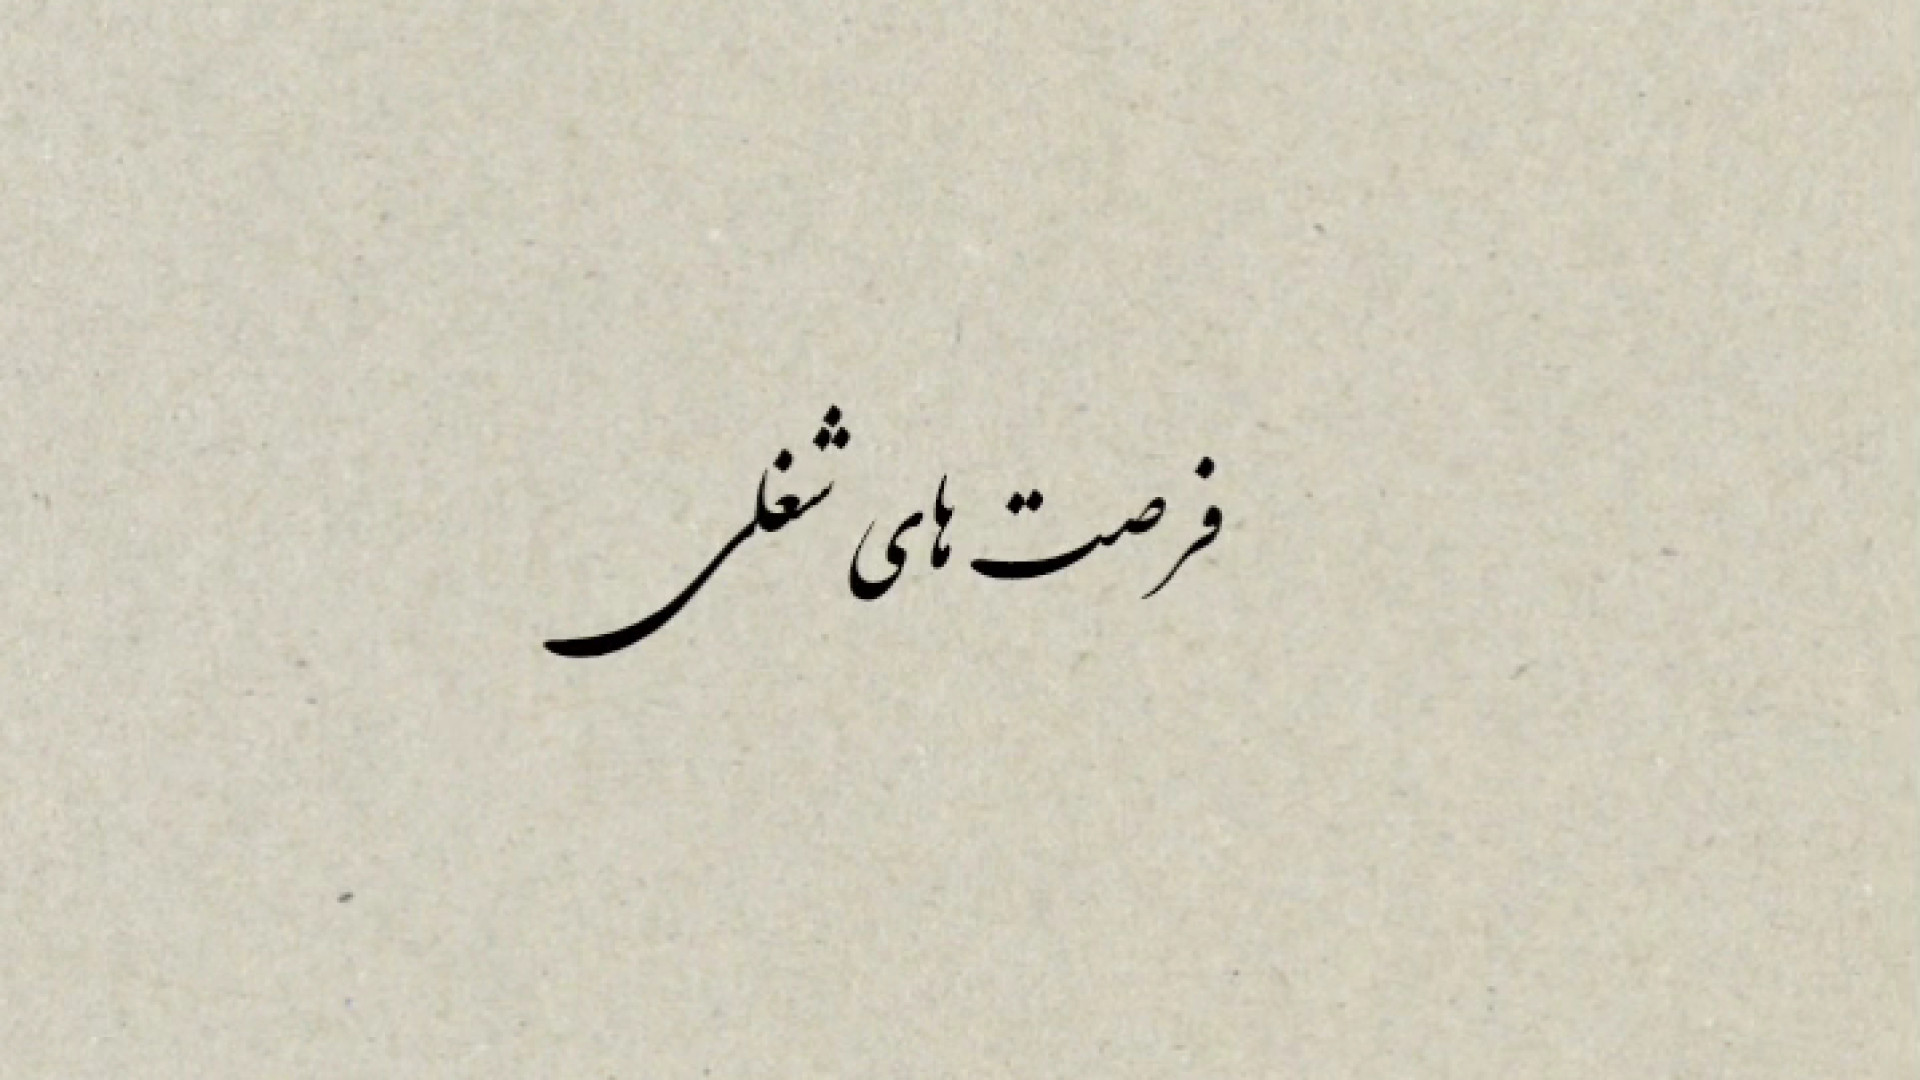 فرصت های شغلی